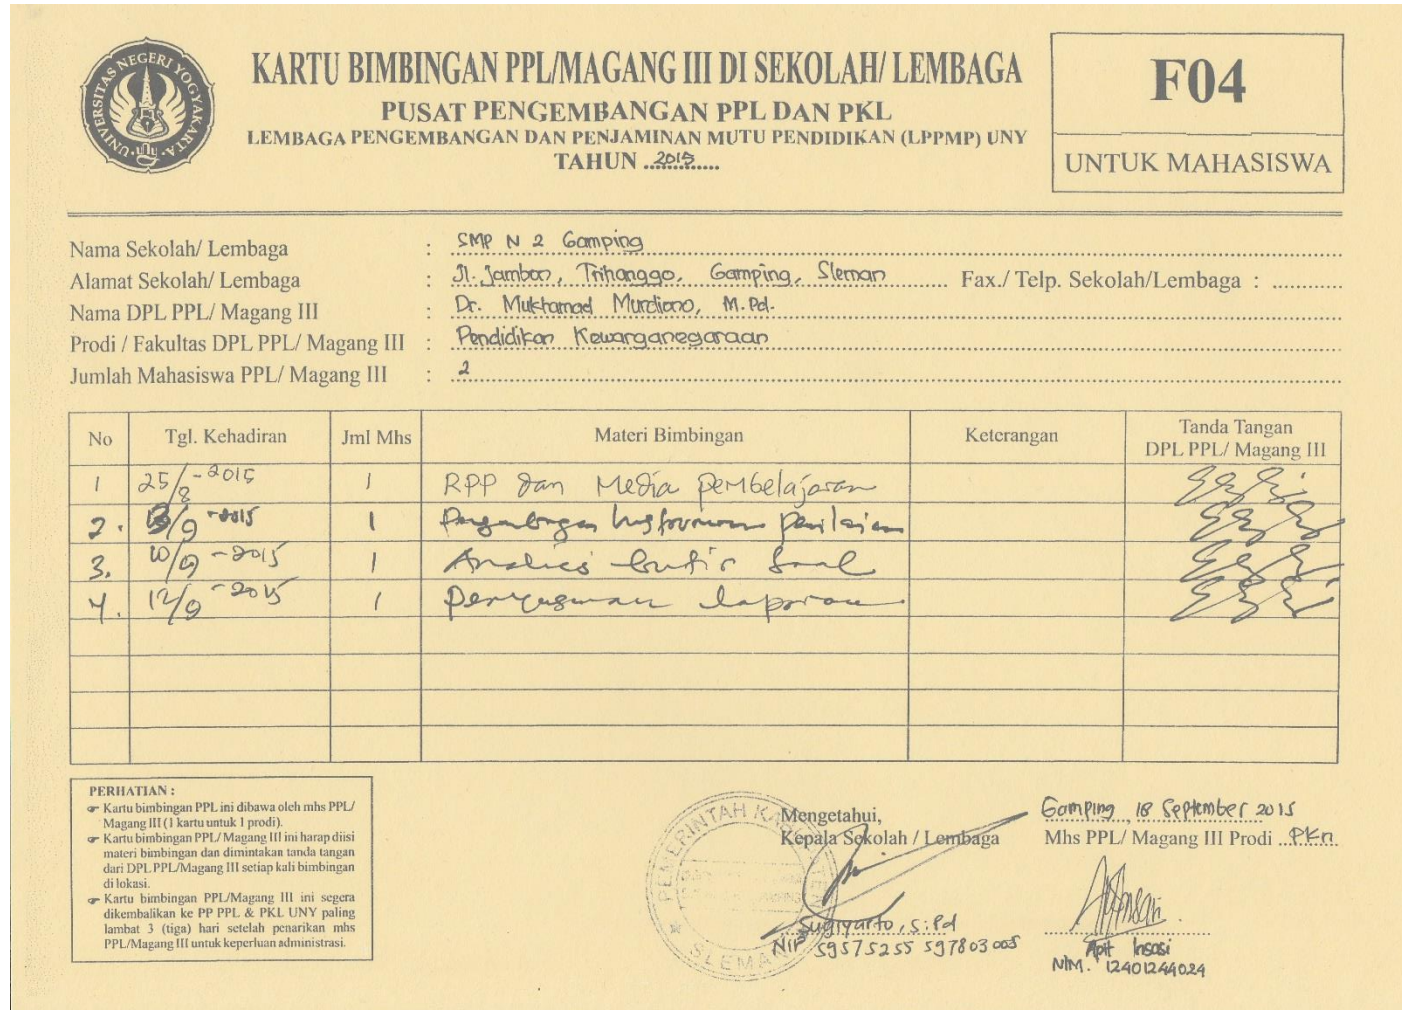 UNIVERSITAS NEGERI YOGYAKARTA
UNY
KARTU BIMBINGAN PPL/MAGANG III DI SEKOLAH/ LEMBAGA
PUSAT PENGEMBANGAN PPL DAN PKL
LEMBAGA PENGEMBANGAN DAN PENJAMINAN MUTU PENDIDIKAN (LPPMP) UNY
TAHUN ..2015.....
F04
UNTUK MAHASISWA
Nama Sekolah/ Lembaga : SMP N 2 Gamping
Alamat Sekolah/ Lembaga : Jl. Jambon, Trihanggo, Gamping, Sleman Fax./ Telp. Sekolah/Lembaga : ............
Nama DPL PPL/ Magang III : Dr. Mukhamad Murdiono, M.Pd.
Prodi / Fakultas DPL PPL/ Magang III : Pendidikan Kewarganegaraan
Jumlah Mahasiswa PPL/ Magang III : 2
No Tgl. Kehadiran Jml Mhs Materi Bimbingan Keterangan Tanda Tangan DPL PPL/ Magang III
1 25/8-2015 1 RPP dan Media pembelajaran
2. /9-2015 1 Pengembangan Instrumen penilaian
3. 10/9-2015 1 Analisis butir Soal
4. 12/9-2015 1 Penyusunan laporan
PERHATIAN :
☞ Kartu bimbingan PPL ini dibawa oleh mhs PPL/
Magang III (1 kartu untuk 1 prodi).
☞ Kartu bimbingan PPL/ Magang III ini harap diisi
materi bimbingan dan dimintakan tanda tangan
dari DPL PPL/Magang III setiap kali bimbingan
di lokasi.
☞ Kartu bimbingan PPL/Magang III ini segera
dikembalikan ke PP PPL & PKL UNY paling
lambat 3 (tiga) hari setelah penarikan mhs
PPL/Magang III untuk keperluan administrasi.
PEMERINTAH KABUPATEN
SLEMAN
Mengetahui,
Kepala Sekolah / Lembaga
Sugiyarto, S.Pd
NIP 59575255 597803 005
Gamping, 18 September 2015
Mhs PPL/ Magang III Prodi ..PKn.
Apit Insasi
NIM. 12401244024